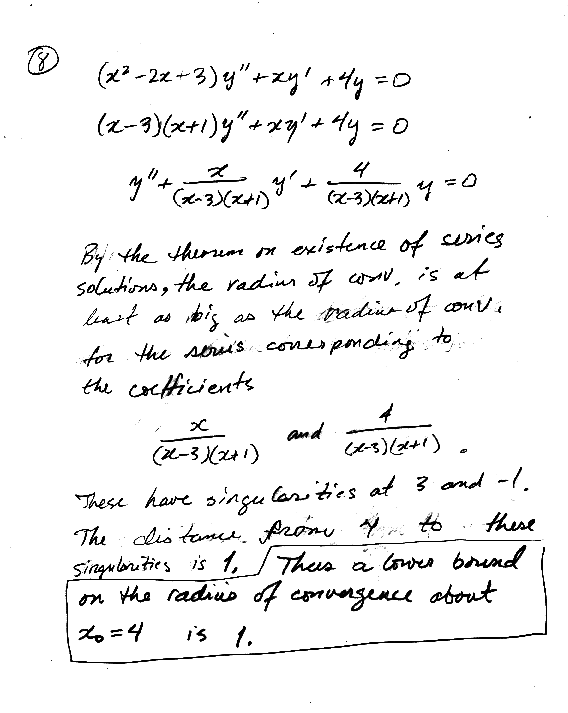 ⑧
(x²-2x+3)y″+xy′+4y=0
(x-3)(x+1)y″+xy′+4y=0
y″+ x/((x-3)(x+1)) y′+ 4/((x-3)(x+1)) y=0
By the theorem on existence of series
solutions, the radius of conv. is at
least as big as the radius of conv.
for the series corresponding to
the coefficients
x/((x-3)(x+1)) and 4/((x-3)(x+1)).
These have singularities at 3 and -1.
The distance from 4 to these
singularities is 1. Thus a lower bound
on the radius of convergence about
x₀=4 is 1.